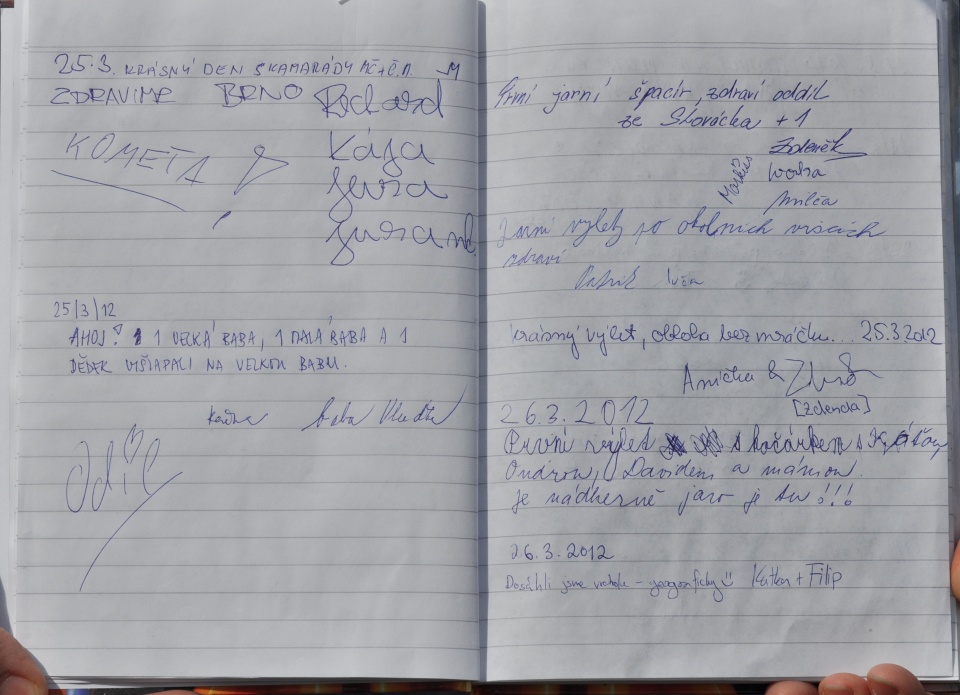 25.3. KRÁSNÝ DEN S KAMARÁDY
ZDRAVÍME BRNO Richard
KOMETA
Kája
Jura
25/3/12
AHOJ! 1 VELKÁ BABA, 1 MALÁ BABA A 1
DĚDEK VYŠLAPALI NA VELKOU BABU.
baba Vlasta
První jarní špacír, zdraví oddíl
ze Slovácka + 1
Zdeněk
Markús
Milča
Jarní výlet po okolních
zdraví
Patrik
krásný výlet, obloha bez mráčku... 25.3.2012
Anička &
[Zdenda]
26.3.2012
První výlet s kočárkem s
Ondrou, Davidem a mámou
je nádherně jaro je tu!!!
26.3.2012
Dosáhli jsme vrcholu - geograficky Katka + Filip